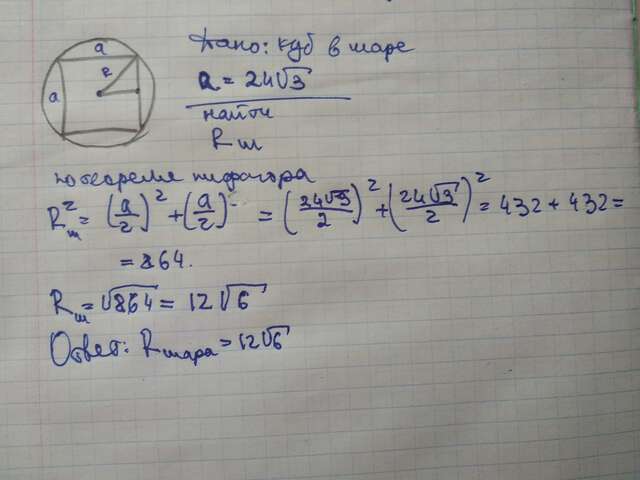 a
R
a
Дано: куб в шаре
a = 24√3
найти
Rш
по теореме пифагора
R²ш = (a/2)² + (a/2)² = (24√3/2)² + (24√3/2)² = 432 + 432 =
= 864.
Rш = √864 = 12√6
Ответ: Rшара = 12√6